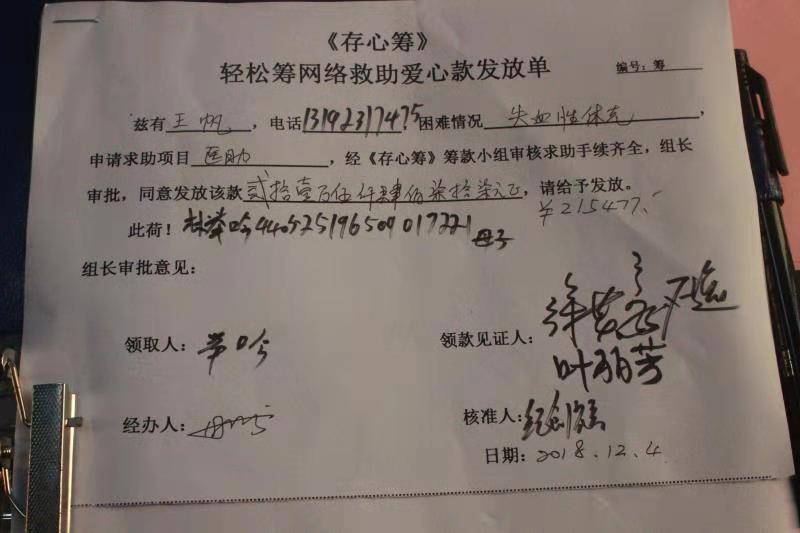 《存心筹》
轻松筹网络救助爱心款发放单
编号：筹
兹有 王帆 ，电话 13192317475 困难情况 失血性休克 ，
申请求助项目 医助 ，经《存心筹》筹款小组审核求助手续齐全，组长
审批，同意发放该款 贰拾壹万伍仟肆佰柒拾柒元正 ，请给予发放。
￥215477.-
此荷！ 440525196509017221 母子
组长审批意见：
领取人：
领款见证人：
叶丽芳
经办人：
核准人：
日期：2018.12.4